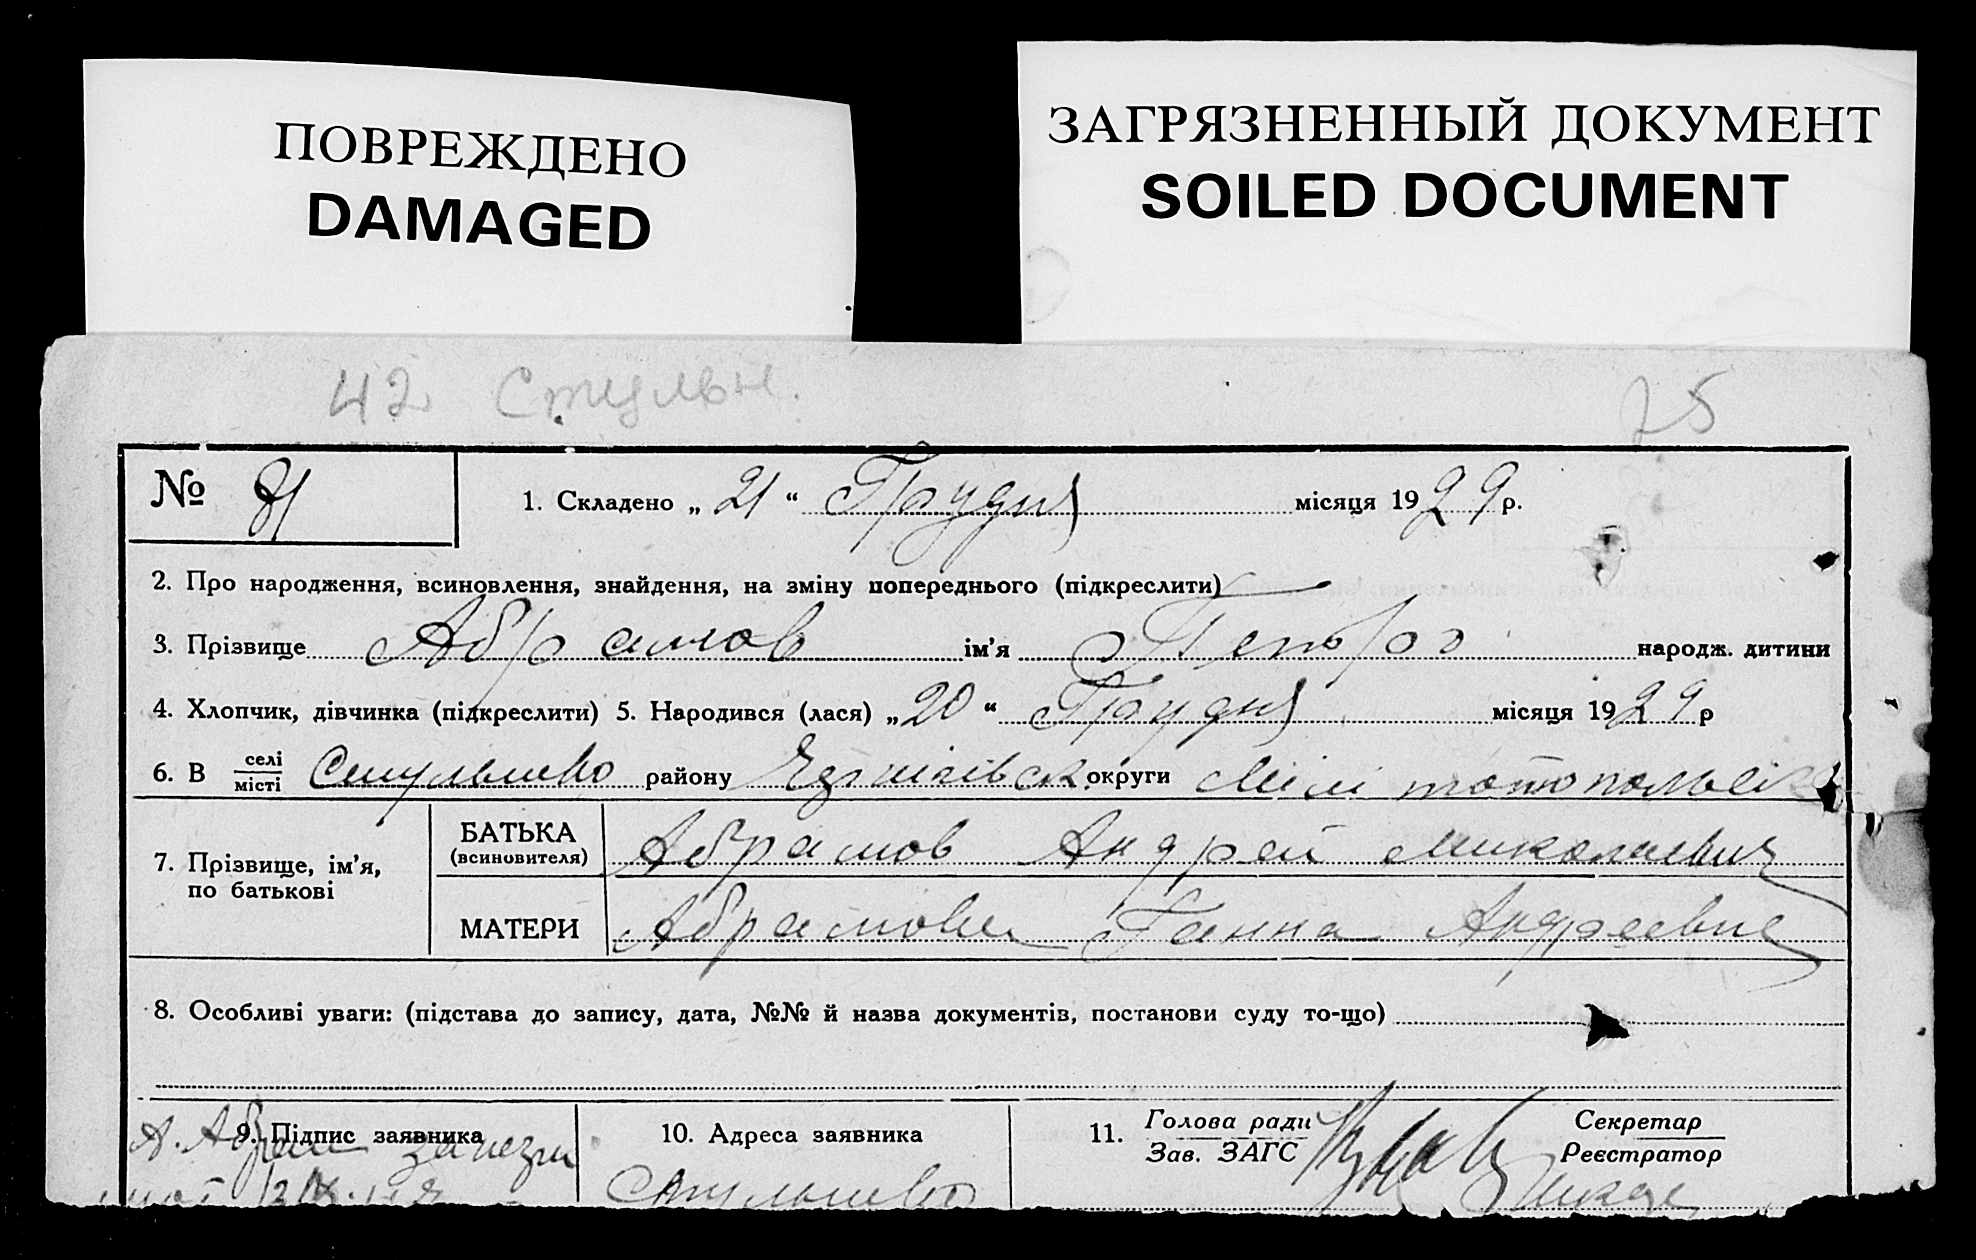 ПОВРЕЖДЕНО
DAMAGED
ЗАГРЯЗНЕННЫЙ ДОКУМЕНТ
SOILED DOCUMENT
42 Стульн. 75
№ 81 1. Складено „ 21 “ Грудня місяця 1929 р.
2. Про народження, всиновлення, знайдення, на зміну попереднього (підкреслити)
3. Прізвище Абрамов ім'я Петро народж. дитини
4. Хлопчик, дівчинка (підкреслити) 5. Народився (лася) „ 20 “ Грудня місяця 1929 р
6. В селі/місті Стульнево району округи
7. Прізвище, ім'я, по батькові
БАТЬКА (всиновителя) Абрамов Андрей Миколаевич
МАТЕРИ Абрамова Ганна Андреевна
8. Особливі уваги: (підстава до запису, дата, №№ й назва документів, постанови суду то-що)
9. Підпис заявника
А. Абрам
10. Адреса заявника
Стульнево
11. Голова ради Зав. ЗАГС
Секретар Реєстратор